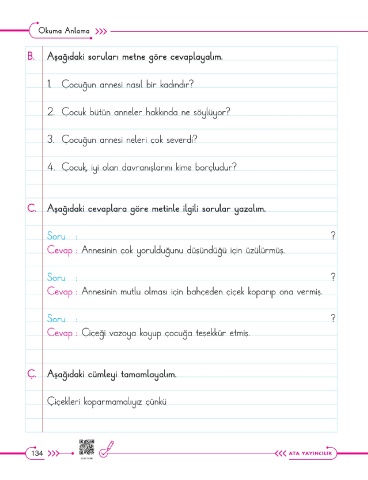 Okuma Anlama
B. Aşağıdaki soruları metne göre cevaplayalım.
1. Çocuğun annesi nasıl bir kadındır?
2. Çocuk bütün anneler hakkında ne söylüyor?
3. Çocuğun annesi neleri çok severdi?
4. Çocuk, iyi olan davranışlarını kime borçludur?
C. Aşağıdaki cevaplara göre metinle ilgili sorular yazalım.
Soru : ?
Cevap : Annesinin çok yorulduğunu düşündüğü için üzülürmüş.
Soru : ?
Cevap : Annesinin mutlu olması için bahçeden çiçek koparıp ona vermiş.
Soru : ?
Cevap : Çiçeği vazoya koyup çocuğa teşekkür etmiş.
Ç. Aşağıdaki cümleyi tamamlayalım.
Çiçekleri koparmamalıyız çünkü
134
ATA YAYINCILIK